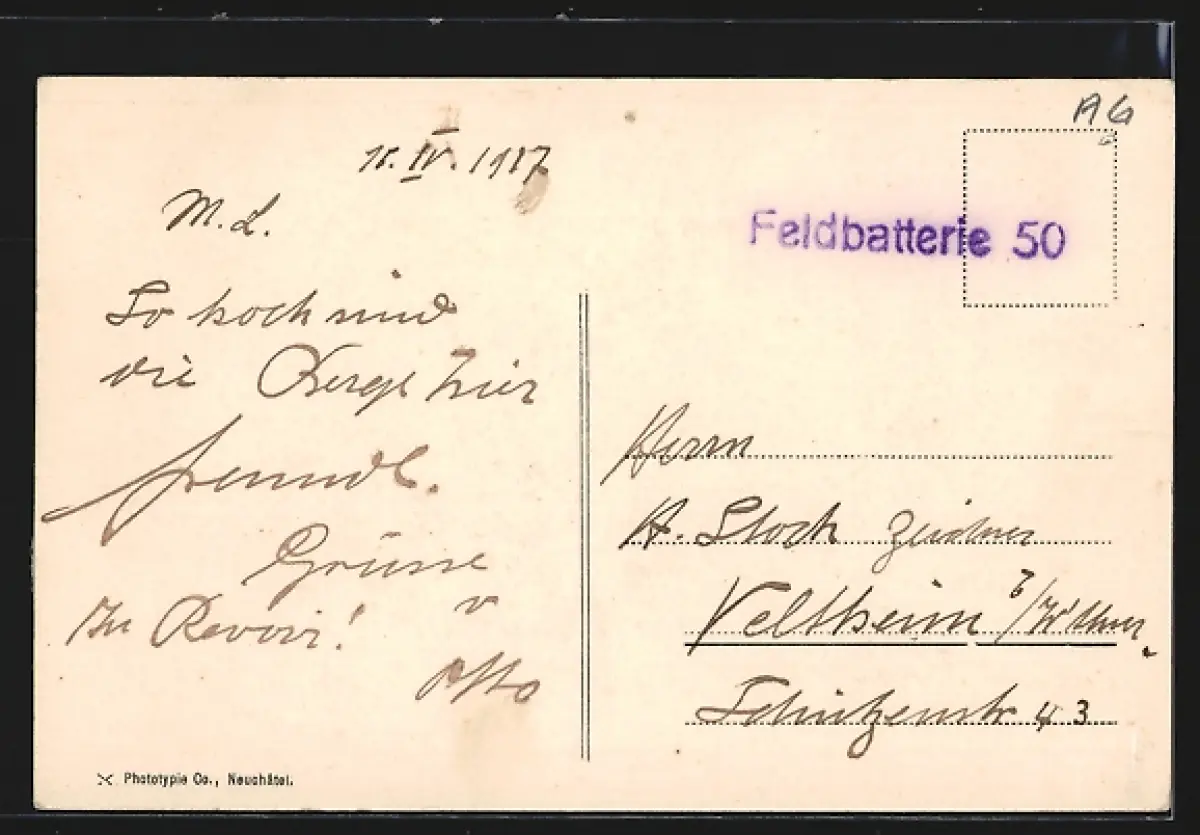 18. IV. 1917
M. L.
So hoch sind
die Berge hier
freundl.
Grüsse
v
Au Revoir!
Otto
Phototypie Co., Neuchâtel.
AG
Feldbatterie 50
Herrn
A. Stock Zeichner
Veltheim b/W'thur.
Schützenstr 43